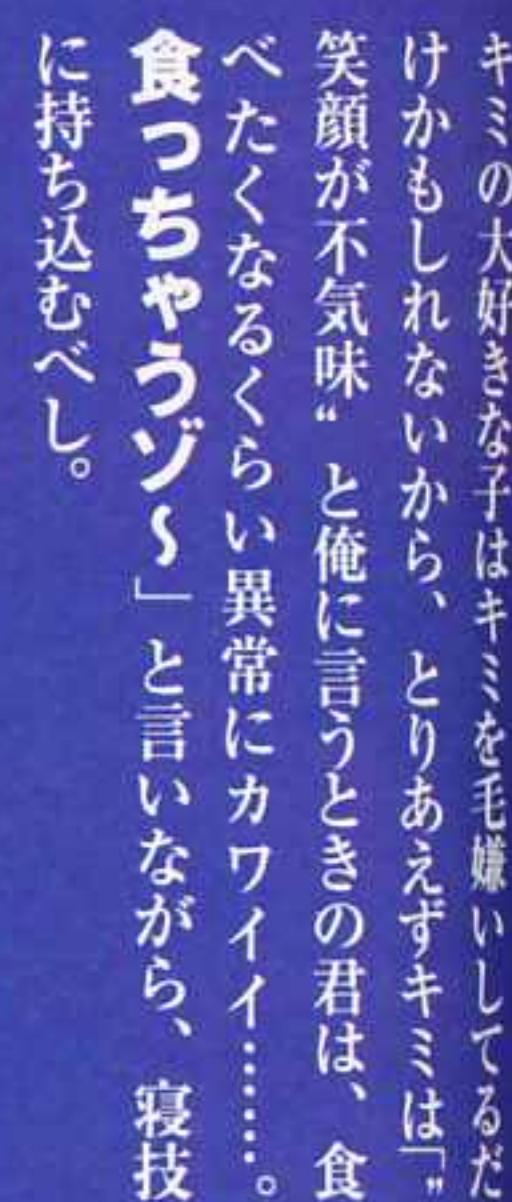 キミの大好きな子はキミを毛嫌いしてるだ
けかもしれないから、とりあえずキミは「〝
笑顔が不気味〟と俺に言うときの君は、食
べたくなるくらい異常にカワイイ……。
食っちゃうゾ〜」と言いながら、寝技
に持ち込むべし。